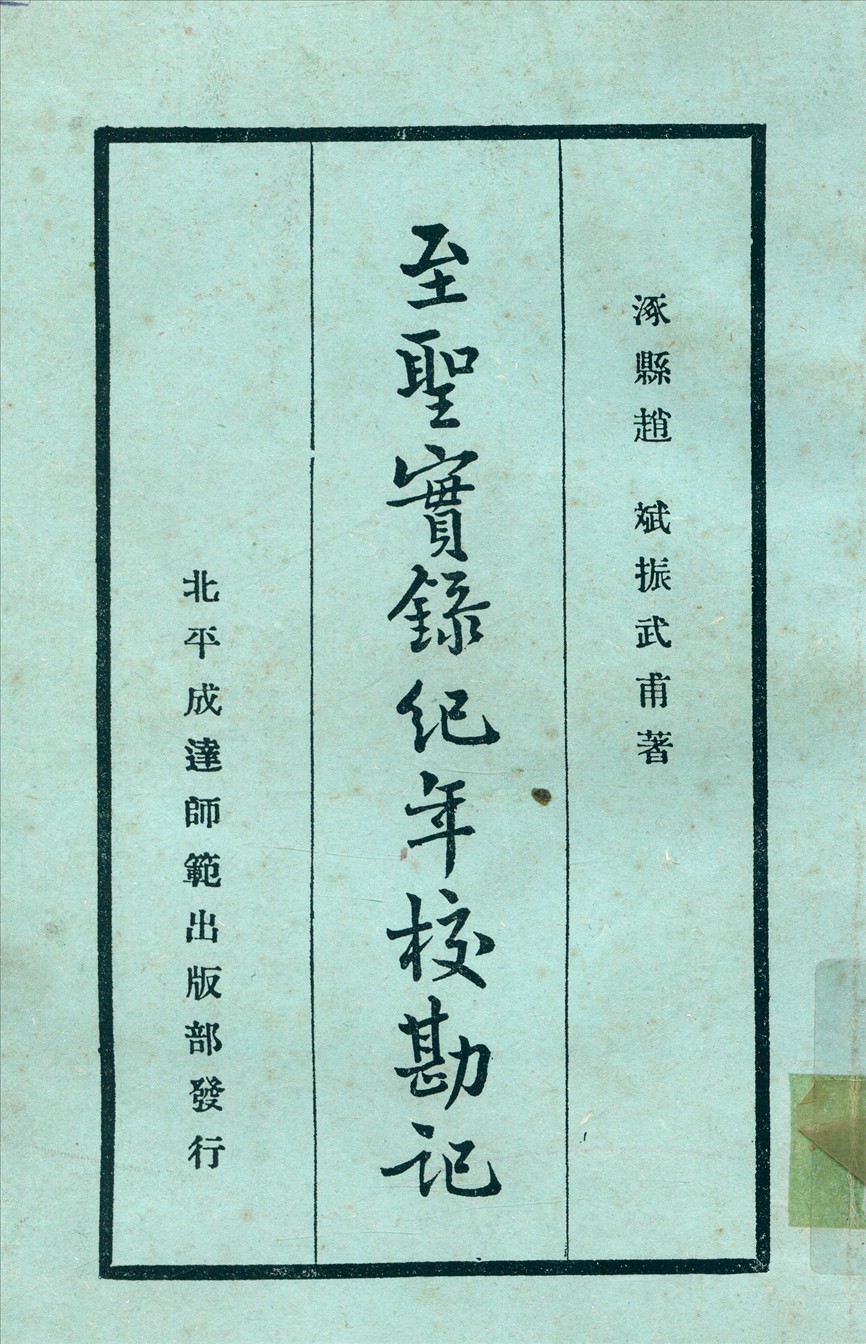 涿縣趙　斌振武甫著
至聖實錄紀年校勘記
北平成達師範出版部發行